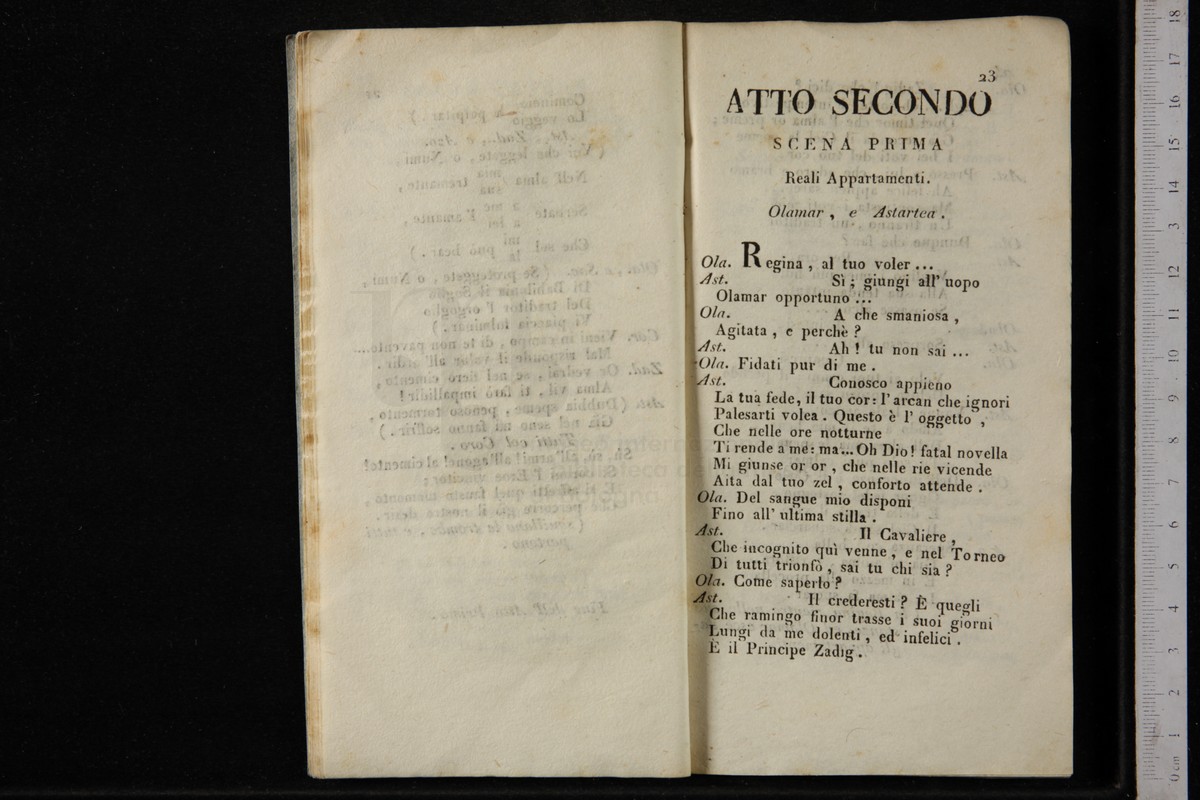 23
ATTO SECONDO
SCENA PRIMA
Reali Appartamenti.
Olamar, e Astartea.
Ola. Regina, al tuo voler...
Ast. Sì; giungi all'uopo
Olamar opportuno...
Ola. A che smaniosa,
Agitata, e perchè?
Ast. Ah! tu non sai...
Ola. Fidati pur di me.
Ast. Conosco appieno
La tua fede, il tuo cor: l'arcan che ignori
Palesarti volea. Questo è l'oggetto,
Che nelle ore notturne
Ti rende a me: ma... Oh Dio! fatal novella
Mi giunse or or, che nelle rie vicende
Aita dal tuo zel, conforto attende.
Ola. Del sangue mio disponi
Fino all'ultima stilla.
Ast. Il Cavaliere,
Che incognito quì venne, e nel Torneo
Di tutti trionfò, sai tu chi sia?
Ola. Come saperlo?
Ast. Il crederesti? È quegli
Che ramingo finor trasse i suoi giorni
Lungi da me dolenti, ed infelici.
È il Principe Zadig.